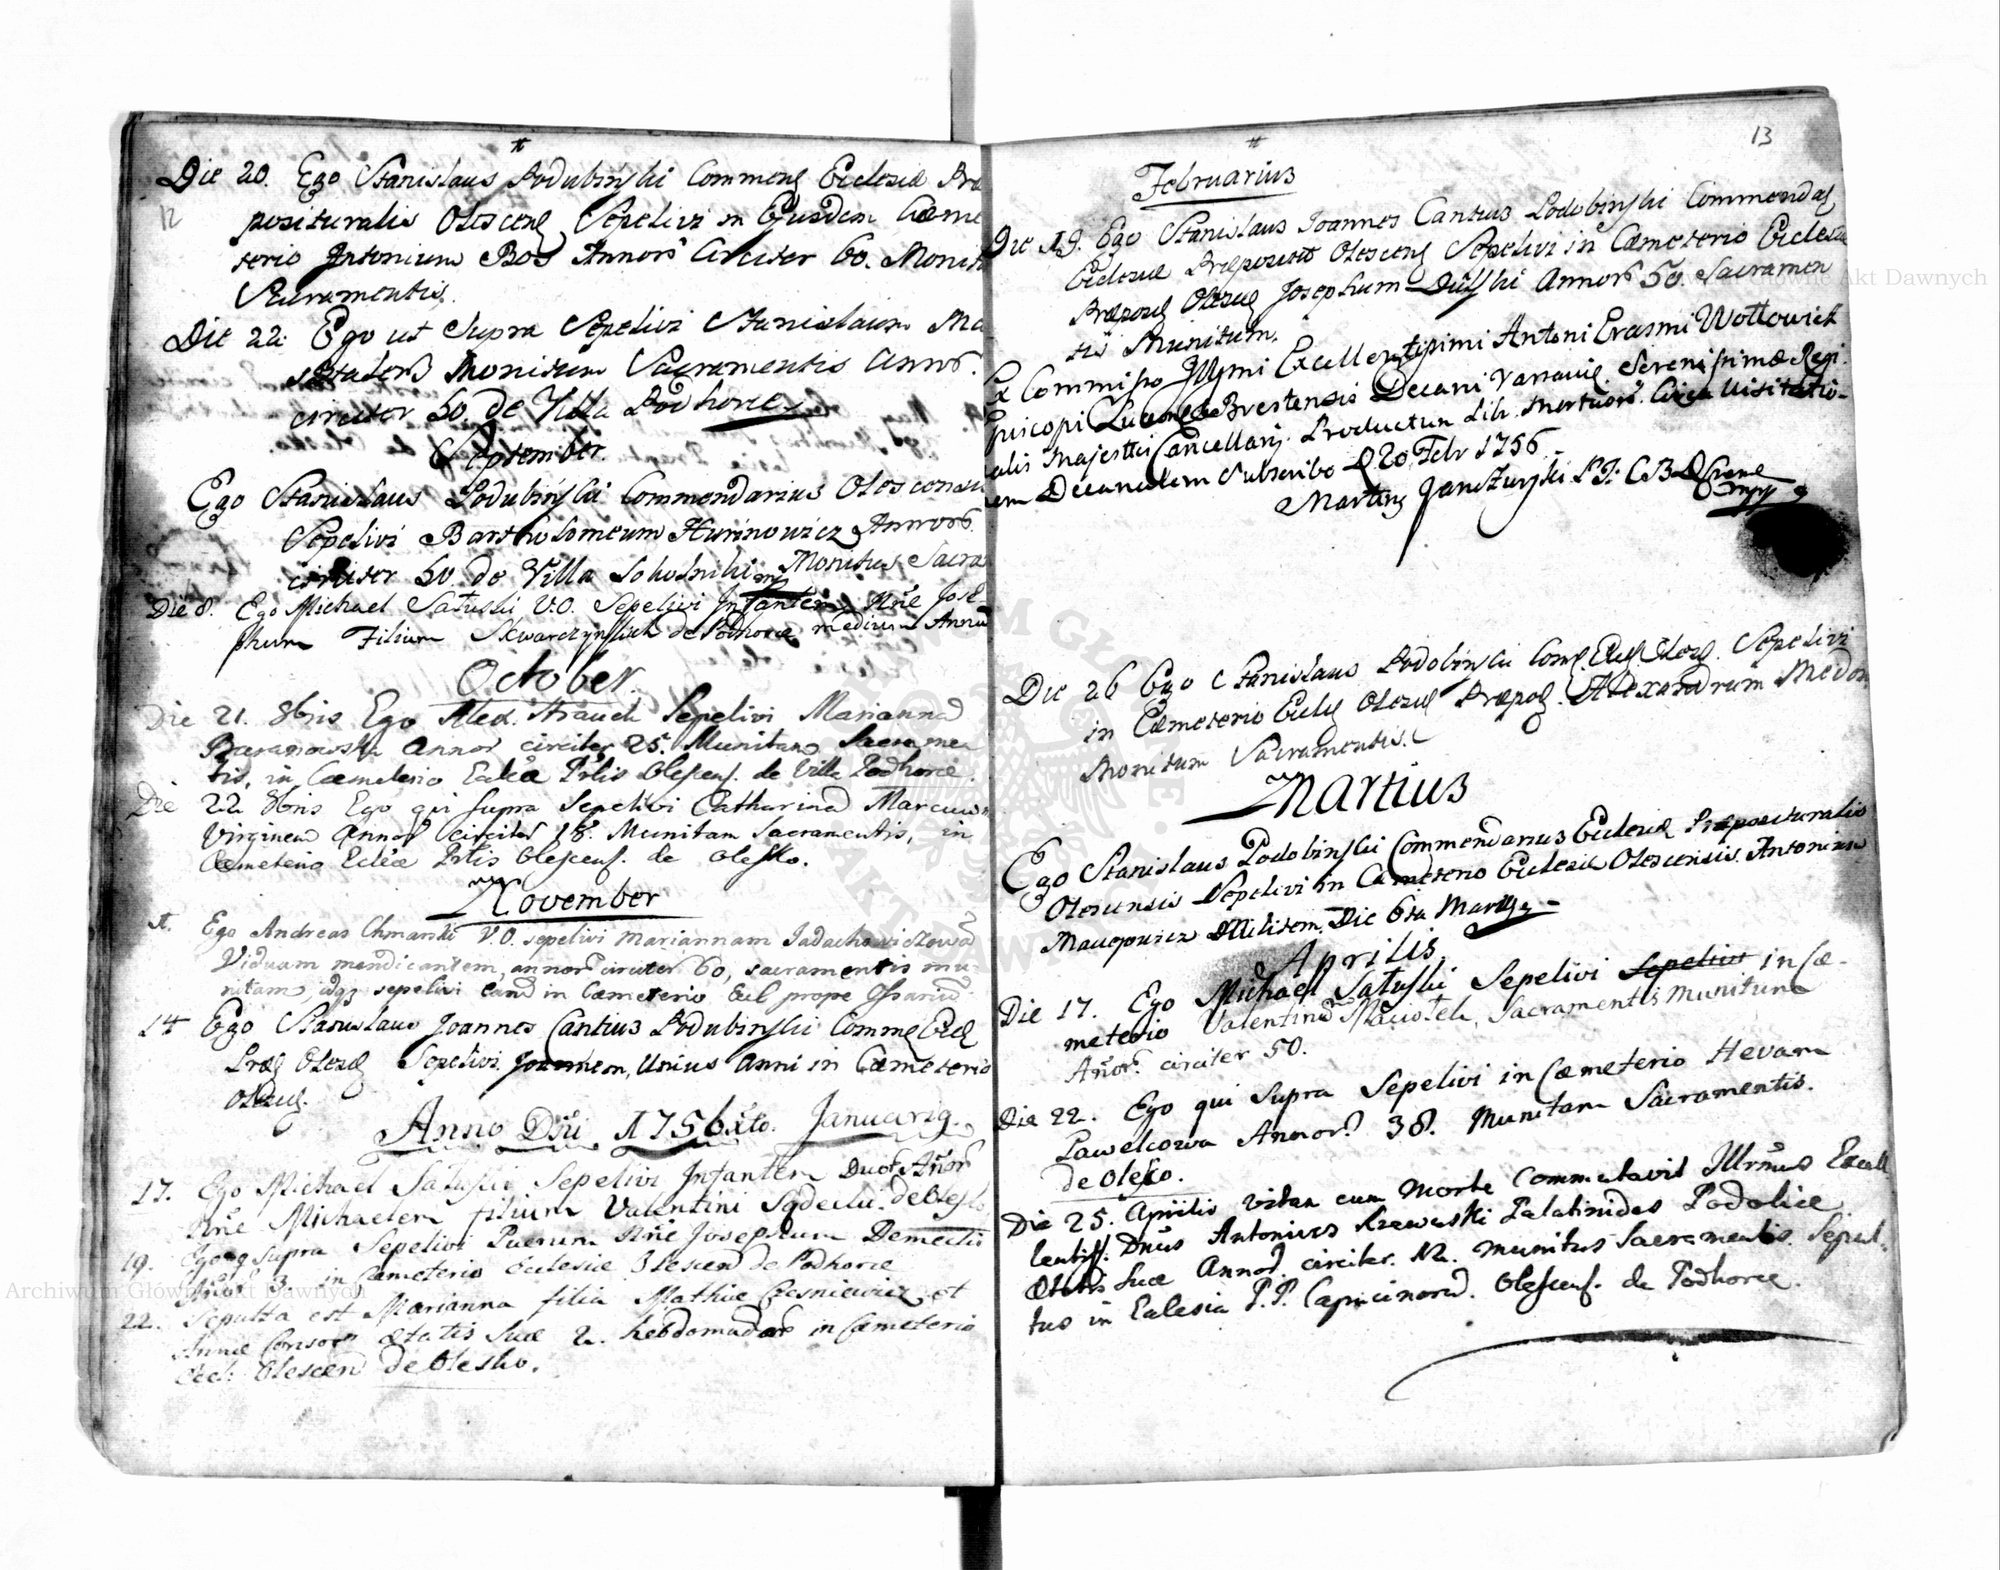 Die 20. Ego Stanislaus Podubinski Commenż Ecclesiæ Præ
12
posituralis Olescenż Sepelivi in Ejusdem Cæme
terio Antonium Bos Annorũ Circiter 60. Monit
Sacramentis.
Die 22. Ego ut Supra Sepelivi Stanislaum
Monitum Sacramentis Annoŕ.
circiter 50. de Villa Podhorce
September.
Ego Stanislaus Podubinski Commendarius Olescensis
Sepelivi Bartholomeum Hurinowicz Annoŕ
circiter 50. de Villa Monitus Sacra
Die 8. Ego Michael Satuski V.O. Sepelivi Infantem Nñe Jose
phum Filium de Podhorce medium Annũ
October.
Die 21. 8bris Ego Alex. Strauch Sepelivi Mariannã
Baranowska Annoŕ circiter 25. Munitam Sacramen
tis, in Cæmeterio Eccleæ Prlis Olescens. de Villa Podhorce.
Die 22 8bris Ego qui supra Sepelivi Catharinã
Virginem Annoŕ circiter 18. Munitam Sacramentis, in
Cæmeterio Eccleæ Prlis Olescens. de Olesko.
November
Ego Andreas Chmarski V.O. sepelivi Mariannam
Viduam mendicantem, annoŕ circiter 60, sacramentis mu
nitam, idqz sepelivi eand in Cæmeterio Eccl prope Ossariũ
14 Ego Stanislaus Joannes Cantius Podubinski Comme Eccl
Præp Olesz Sepelivi Joannem, Unius Anni in Cæmeterio
Olesz.
Anno Dñi 1756xto. Januarij.
17. Ego Michael Satuski Sepelivi Infantem Duoŕ Añoŕ
Nñe Michaelem filium Valentini de Olesko
19. Ego qui supra Sepelivi Puerum Nñe Josephum
Añoŕ 3. in Cæmeterio Ecclesiæ Olescens de Podhorce
22. Sepulta est Marianna filia Mathiæ et
Annæ Consor ætatis suæ 2. hebdomadar in Cæmeterio
Eccl. Olescens de Olesko.
13
Februarius
Die 19. Ego Stanislaus Joannes Cantius Podobinski Commendaż
Ecclesiæ Præposit Olescenż Sepelivi in Cæmeterio Ecclesiæ
Præposż Olesz Josephum Annoŕ 50. Sacramen
tis Munitum.
Ex Commisso Illmi Excellentissimi Antoni Erasmi Wollowicz
Episcopi Luceor Brestensis Decani Varsavie. Serenissimæ Regi
alis Majesttis Cancellarij. Productum Lib. Mortuoŕ. Circa Visitatio
em Decanalem Subscribo D 20 Febr 1756
Die 26 Ego Stanislaus Podobinski Comż Eccl Olesz. Sepelivi
in Cæmeterio Eccl Olesz Præpoż. Alexandrum
Monitum Sacramentis.
Martius
Ego Stanislaus Podobinski Commendarius Ecclesiæ Præposituralis
Olesensis Sepelivi in Cæmeterio Ecclesiæ Olescensis Antonium
Militem. Die 6ta Martij
Aprilis
Die 17. Ego Michael Satuski Sepelivi Sepelivi in Cæ-
meterio Valentinũ Sacramentis munitum
Añoŕ. circiter 50.
Die 22. Ego qui Supra Sepelivi in Cæmeterio Hevam
Pawelcowa Annoŕ. 38. Munitam Sacramentis.
de Olesko.
Die 25. Aprilis vitam cum Morte Commutavit Illrmus Excel
lentiss. Dñus Antonius Rzewuski Palatinides Podoliæ
Ætatis Suæ Annoŕ. circiter. 12. munitus Sacramentis. Sepul-
tus in Eclesia P.P. Capucinorũ. Olescens. de Podhorce.
Archiwum Główne Akt Dawnych
Archiwum Główne Akt Dawnych